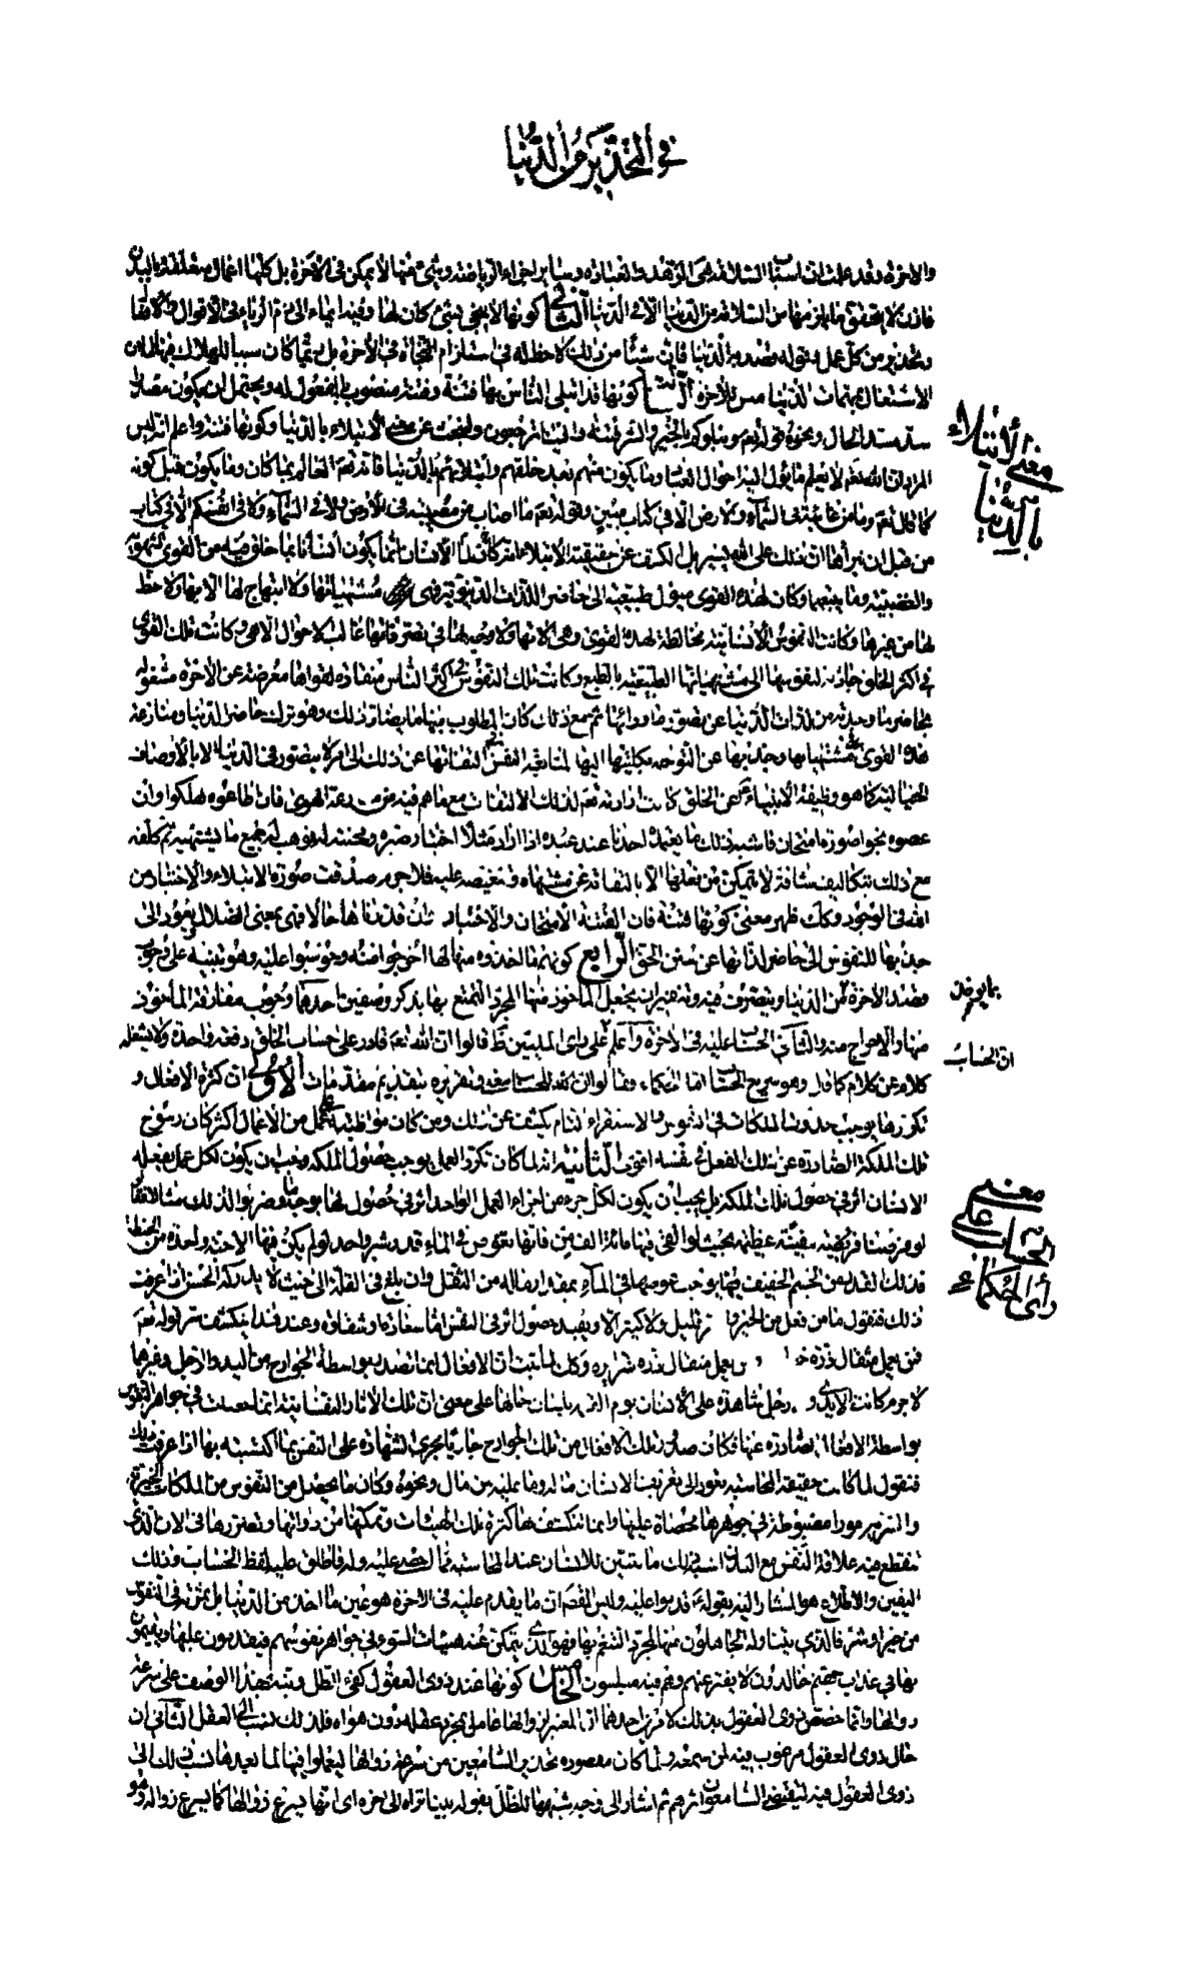 في التحذير من الدنيا
والاخرة وقد علمت ان اسباب السلامة هى الزهد والعبادة وساير اجزاء الرياضة وشئ منها لا يمكن في الاخرة بل كلها اعمال متعلقة بالبدن
فاذن لا يتحقق ما يلزمها من السلامة من الدنيا الا في الدنيا الثاني كونها لا ينجى بشئ كان لها وفيه ايماء الى ذم الرياء في الاقوال والافعال
وتحذير من كل عمل وقوله قصد به الدنيا فان شيئا من ذلك لا حظ له في استلزام النجاة في الاخرة بل ربما كان سببا للهلاك فيها لان
الاشتغال بمهمات الدنيا منس للاخرة الثالث كونها قد ابتلى الناس بها فتنة وفتنة منصوب بالمفعول له ويحتمل ان يكون مصدرا
سد مسد الحال ونحوه قوله تعم ونبلوكم بالخير والشر فتنة والينا ترجعون ولنبحث عن معنى الابتلاء بالدنيا وكونها فتنة واعلم انه ليس
المراد ان الله تعم لا يعلم ما يؤل اليه احوال العباد وما يكون منهم بعد خلقهم وابتلائهم بالدنيا فانه تعم العالم بما كان وما يكون قبل كونه
كما قال تعم وما من غائبة في السماء والارض الا في كتاب مبين وقوله تعم ما اصاب من مصيبة في الارض ولا في انفسكم الا في كتاب
من قبل ان نبراها ان ذلك على الله يسير بل الكشف عن حقيقة الابتلاء انه لما كان الانسان انما يكون انسانا بما خلق فيه من القوى الشهوية
والغضبية وما يتبعهما وكان لهذه القوى ميول طبيعية الى حاضر اللذات الدنيوية فهى مشتهياتها ولا ابتهاج لها الا بها ولا حظ
لها من غيرها وكانت النفوس الانسانية مخالطة لهذه القوى وهى الاتها ولا وجه لها في تصرفاتها غالب الاحوال الا هى وكانت تلك القوى
في اكثر الخلق جاذبة لنفوسها الى مشتهياتها الطبيعية بالطبع وكانت تلك النفوس في اكثر الناس منقادة لقواها معرضة عن الاخرة مشغولة
بحاضر ما وجدته من لذات الدنيا عن تصور ما ورائها ثم مع ذلك كان المطلوب منها ما يضاد ذلك وهو ترك حاضر الدنيا ومنازعة
هذه القوى مشتهياتها وجذبها عن التوجه بكليتها اليها لمتابعة النفس في التفاتها عن ذلك الى امر لا يتصور في الدنيا الا بالاوصاف
الخيالية كما هو وظيفة الانبياء مع الخلق كانت ارادته تعم لذلك الالتفات مع ما هم فيه من منازعة الهوى فان اطاعوه هلكوا وان
عصوه نجوا صورة امتحان فاشبه ذلك ما يعمله احدنا عند عبده اذا اراد مثلا اختبار صبره ومحبته له فوهب له جميع ما يشتهيه ثم كلفه
مع ذلك بتكاليف شاقة لا يتمكن من فعلها الا بالتفاته عن مشتهاه وتنغيصه عليه فلا جرم صدقت صورة الابتلاء والاختبار من
الله في الوجود وكذلك ظهر معنى كونها فتنة فان الفتنة الامتحان والاختبار وان قدرناها حالا فهى بمعنى الضلال ويعود الى
جذبها للنفوس الى حاضر لذاتها عن سنن الحق الرابع كونهم ما اخذوه منها لها اخرجوا منه وحوسبوا عليه وهو تنبيه على وجوب
قصد الاخرة بما يؤخذ من الدنيا ويتصرف فيه وتنفير ان يجعل الماخوذ منها لمجرد التمتع بها بذكر وصفين احدهما وجوب مفارقة الماخوذ
منها والاخراج منه والثاني الحساب عليه في الاخرة واعلم على راى المليين ظ فانهم قالوا ان الله تعم قادر على حساب الخلق دفعة واحدة ولا يشغله
كلام عن كلام كما قال وهو سريع الحاسبين اما الحكماء فقالوا ان للحساب معنى وتقريره بتقديم مقدمات الاولى ان كثرة الافعال و
تكررها يوجب حدوث الملكات في النفوس والاستقراء التام يكشف عن ذلك ومن كان مواظبته على عمل من الاعمال اكثر كان رسوخ
تلك الملكة الصادرة عن ذلك الفعل في نفسه اقوى الثانية انه لما كان تكرر العمل يوجب حصول الملكة وجب ان يكون لكل عمل يفعله
الانسان اثر في حصول تلك الملكة بل يجب ان يكون لكل جزء من اجزاء العمل الواحد اثر في حصول لها بوجه ما وضربوا لذلك مثالا فقالوا
لو فرضنا سفينة عظيمة بحيث لو القى فيها مائة الف من فانها تغوص في الماء قدر شبر واحد لو لم يكن فيها الا حبة واحدة من الحنطة
فذلك القدر من الجسم الخفيف فيها يوجب غوصها في الماء بمقدار ماله من الثقل وان بلغ في القلة الى حيث لا يدركه الحس اذا عرفت
ذلك فنقول ما من فعل من الخير والشر قليل ولا كثير الا ويفيد حصول اثر في النفس اما سعادة او شقاوة وعند هذا ينكشف سر قوله تعم
فمن يعمل مثقال ذرة خيرا يره ومن يعمل مثقال ذرة شرا يره وكذلك لما ثبت ان الافعال انما تصدر بواسطة الجوارح من اليد والرجل وغيرهما
لا جرم كانت الايدى والارجل شاهدة على الانسان يوم القيمة بلسان حالها على معنى ان تلك الاثار النفسانية انما حصلت في جواهر النفوس
بواسطة الافعال الصادرة عنها فكان صدور تلك الافعال من تلك الجوارح جاريا مجرى الشهادة على النفس بما اكتسبته بها اذا عرفت ذلك
فنقول لما كانت حقيقة المحاسبة تعود الى تعريف الانسان ما له وما عليه من مال ونحوه وكان ما يحصل من النفوس من الملكات الخيرية
والشرية امورا مضبوطة في جواهرها محصاة عليها وانما تنكشف لها كثرة تلك الهيئات وتمكنها من ذواتها وتضررها في الان الذى
تنقطع فيه علاقة النفس مع البدن اشبه ذلك ما يتبين للانسان عند المحاسبة مما احصى عليه وله فاطلق عليه لفظ الحساب وذلك
اليقين والاطلاع هو المشار اليه بقوله قدموا عليه وليس القصد ان ما يقدم عليه في الاخرة هو عين ما اخذ من الدنيا بل ثمرته في النفوس
من خير او شر فالذى يتناوله الجاهلون منها لمجرد التنعم بها فهو الذى يتمكن عنه هيئات السوء في جواهر نفوسهم فيقدمون عليها ويقيمون
بها في عذاب جهنم خالدون لا يفتر عنهم وهم فيه مبلسون الخامس كونها عند ذوى العقول كفئ الظل ونبه بهذا الوصف على سرعة
زوالها وانما خصص ذوى العقول بذلك لامرين احدهما ان المعتبر لزوالها عامل بمجرد عقله دون هواه فلذلك نسب الى العقل الثاني ان
حال ذوى العقول مرغوب فيه لمن سمعه ولما كان مقصوده تحذير السامعين من سرعة زوالها ليعملوا فيها لما بعدها نسب ذلك الى
ذوى العقول فيه ليقتفى السامعون اثرهم ثم اشار الى وجه شبهها للظل بقوله بينا تراه الى اخره اى انها يسرع زوالها كما يسرع زواله وهو
معنى الابتلاء
بالدنيا
بما يؤخذ
ان الحساب
معنى
الحساب على
راى الحكماء